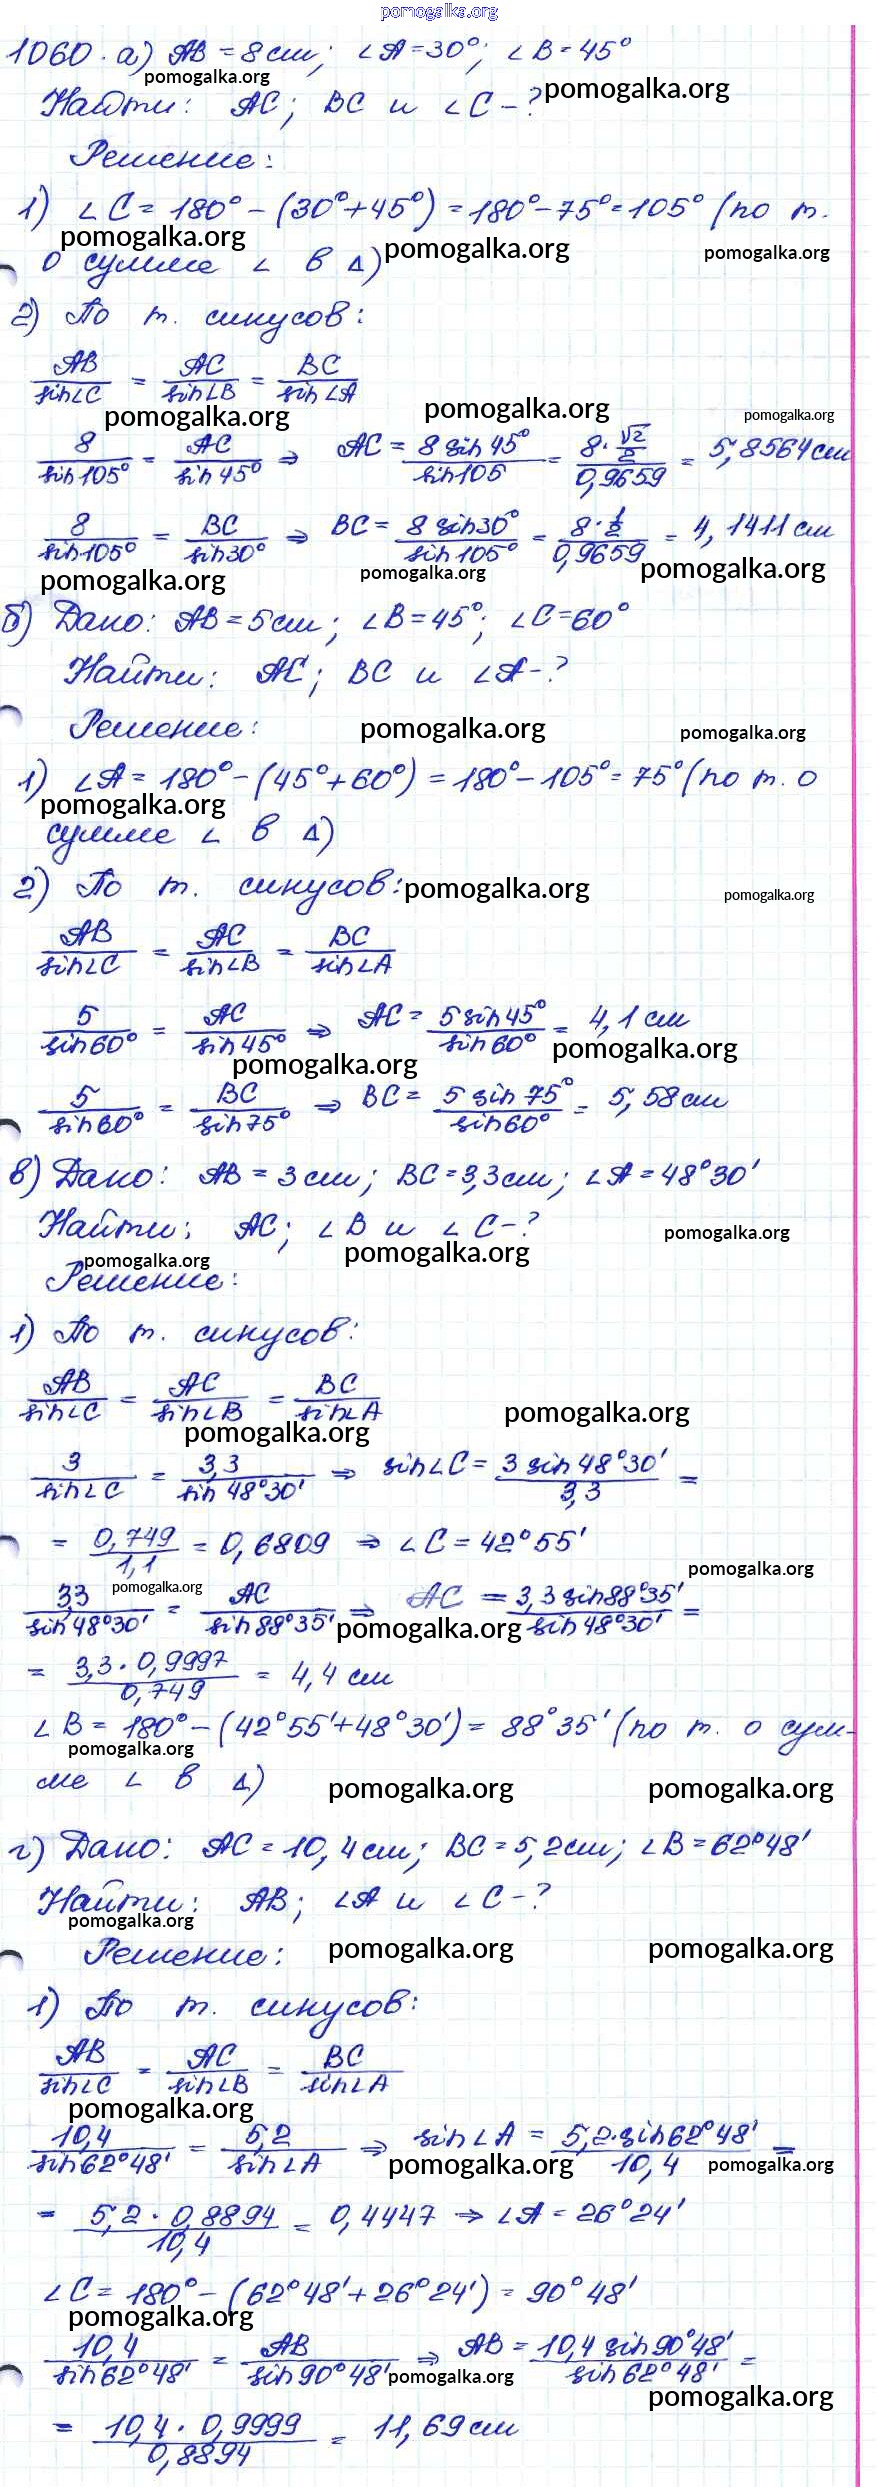 pomogalka.org
1060. а) AB = 8 см; ∠A = 30°; ∠B = 45°
pomogalka.org
Найти: AC; BC и ∠C - ? pomogalka.org
Решение:
1) ∠C = 180° - (30° + 45°) = 180° - 75° = 105° (по т.
pomogalka.org pomogalka.org pomogalka.org
о сумме ∠ в Δ)
2) По т. синусов:
AB/sin∠C = AC/sin∠B = BC/sin∠A
pomogalka.org pomogalka.org pomogalka.org
8/sin105° = AC/sin45° ⇒ AC = 8 sin45°/sin105 = 8·√2/2/0,9659 = 5,8564 см
8/sin105° = BC/sin30° ⇒ BC = 8 sin30°/sin105° = 8·1/2/0,9659 = 4,1411 см
pomogalka.org pomogalka.org pomogalka.org
б) Дано: AB = 5 см; ∠B = 45°; ∠C = 60°
Найти: AC; BC и ∠A - ?
Решение: pomogalka.org pomogalka.org
1) ∠A = 180° - (45° + 60°) = 180° - 105° = 75° (по т. о
pomogalka.org
сумме ∠ в Δ)
2) По т. синусов: pomogalka.org pomogalka.org
AB/sin∠C = AC/sin∠B = BC/sin∠A
5/sin60° = AC/sin45° ⇒ AC = 5 sin45°/sin60° = 4,1 см
pomogalka.org pomogalka.org
5/sin60° = BC/sin75° ⇒ BC = 5 sin75°/sin60° = 5,58 см
в) Дано: AB = 3 см; BC = 3,3 см; ∠A = 48°30'
Найти: AC; ∠B и ∠C - ? pomogalka.org
pomogalka.org pomogalka.org
Решение:
1) По т. синусов:
AB/sin∠C = AC/sin∠B = BC/sin∠A
pomogalka.org pomogalka.org
3/sin∠C = 3,3/sin48°30' ⇒ sin∠C = 3 sin48°30'/3,3 =
= 0,749/1,1 = 0,6809 ⇒ ∠C = 42°55'
pomogalka.org pomogalka.org
3,3/sin48°30' = AC/sin88°35' ⇒ AC = 3,3 sin88°35'/sin48°30' =
pomogalka.org
= 3,3·0,9997/0,749 = 4,4 см
∠B = 180° - (42°55' + 48°30') = 88°35' (по т. о сум-
pomogalka.org
ме ∠ в Δ) pomogalka.org pomogalka.org
г) Дано: AC = 10,4 см; BC = 5,2 см; ∠B = 62°48'
Найти: AB; ∠A и ∠C - ?
pomogalka.org
Решение: pomogalka.org pomogalka.org
1) По т. синусов:
AB/sin∠C = AC/sin∠B = BC/sin∠A
pomogalka.org
10,4/sin62°48' = 5,2/sin∠A ⇒ sin∠A = 5,2·sin62°48'/10,4 =
pomogalka.org pomogalka.org
= 5,2·0,8894/10,4 = 0,4447 ⇒ ∠A = 26°24'
∠C = 180° - (62°48' + 26°24') = 90°48'
pomogalka.org
10,4/sin62°48' = AB/sin90°48' ⇒ AB = 10,4 sin90°48'/sin62°48' =
pomogalka.org pomogalka.org
= 10,4·0,9999/0,8894 = 11,69 см